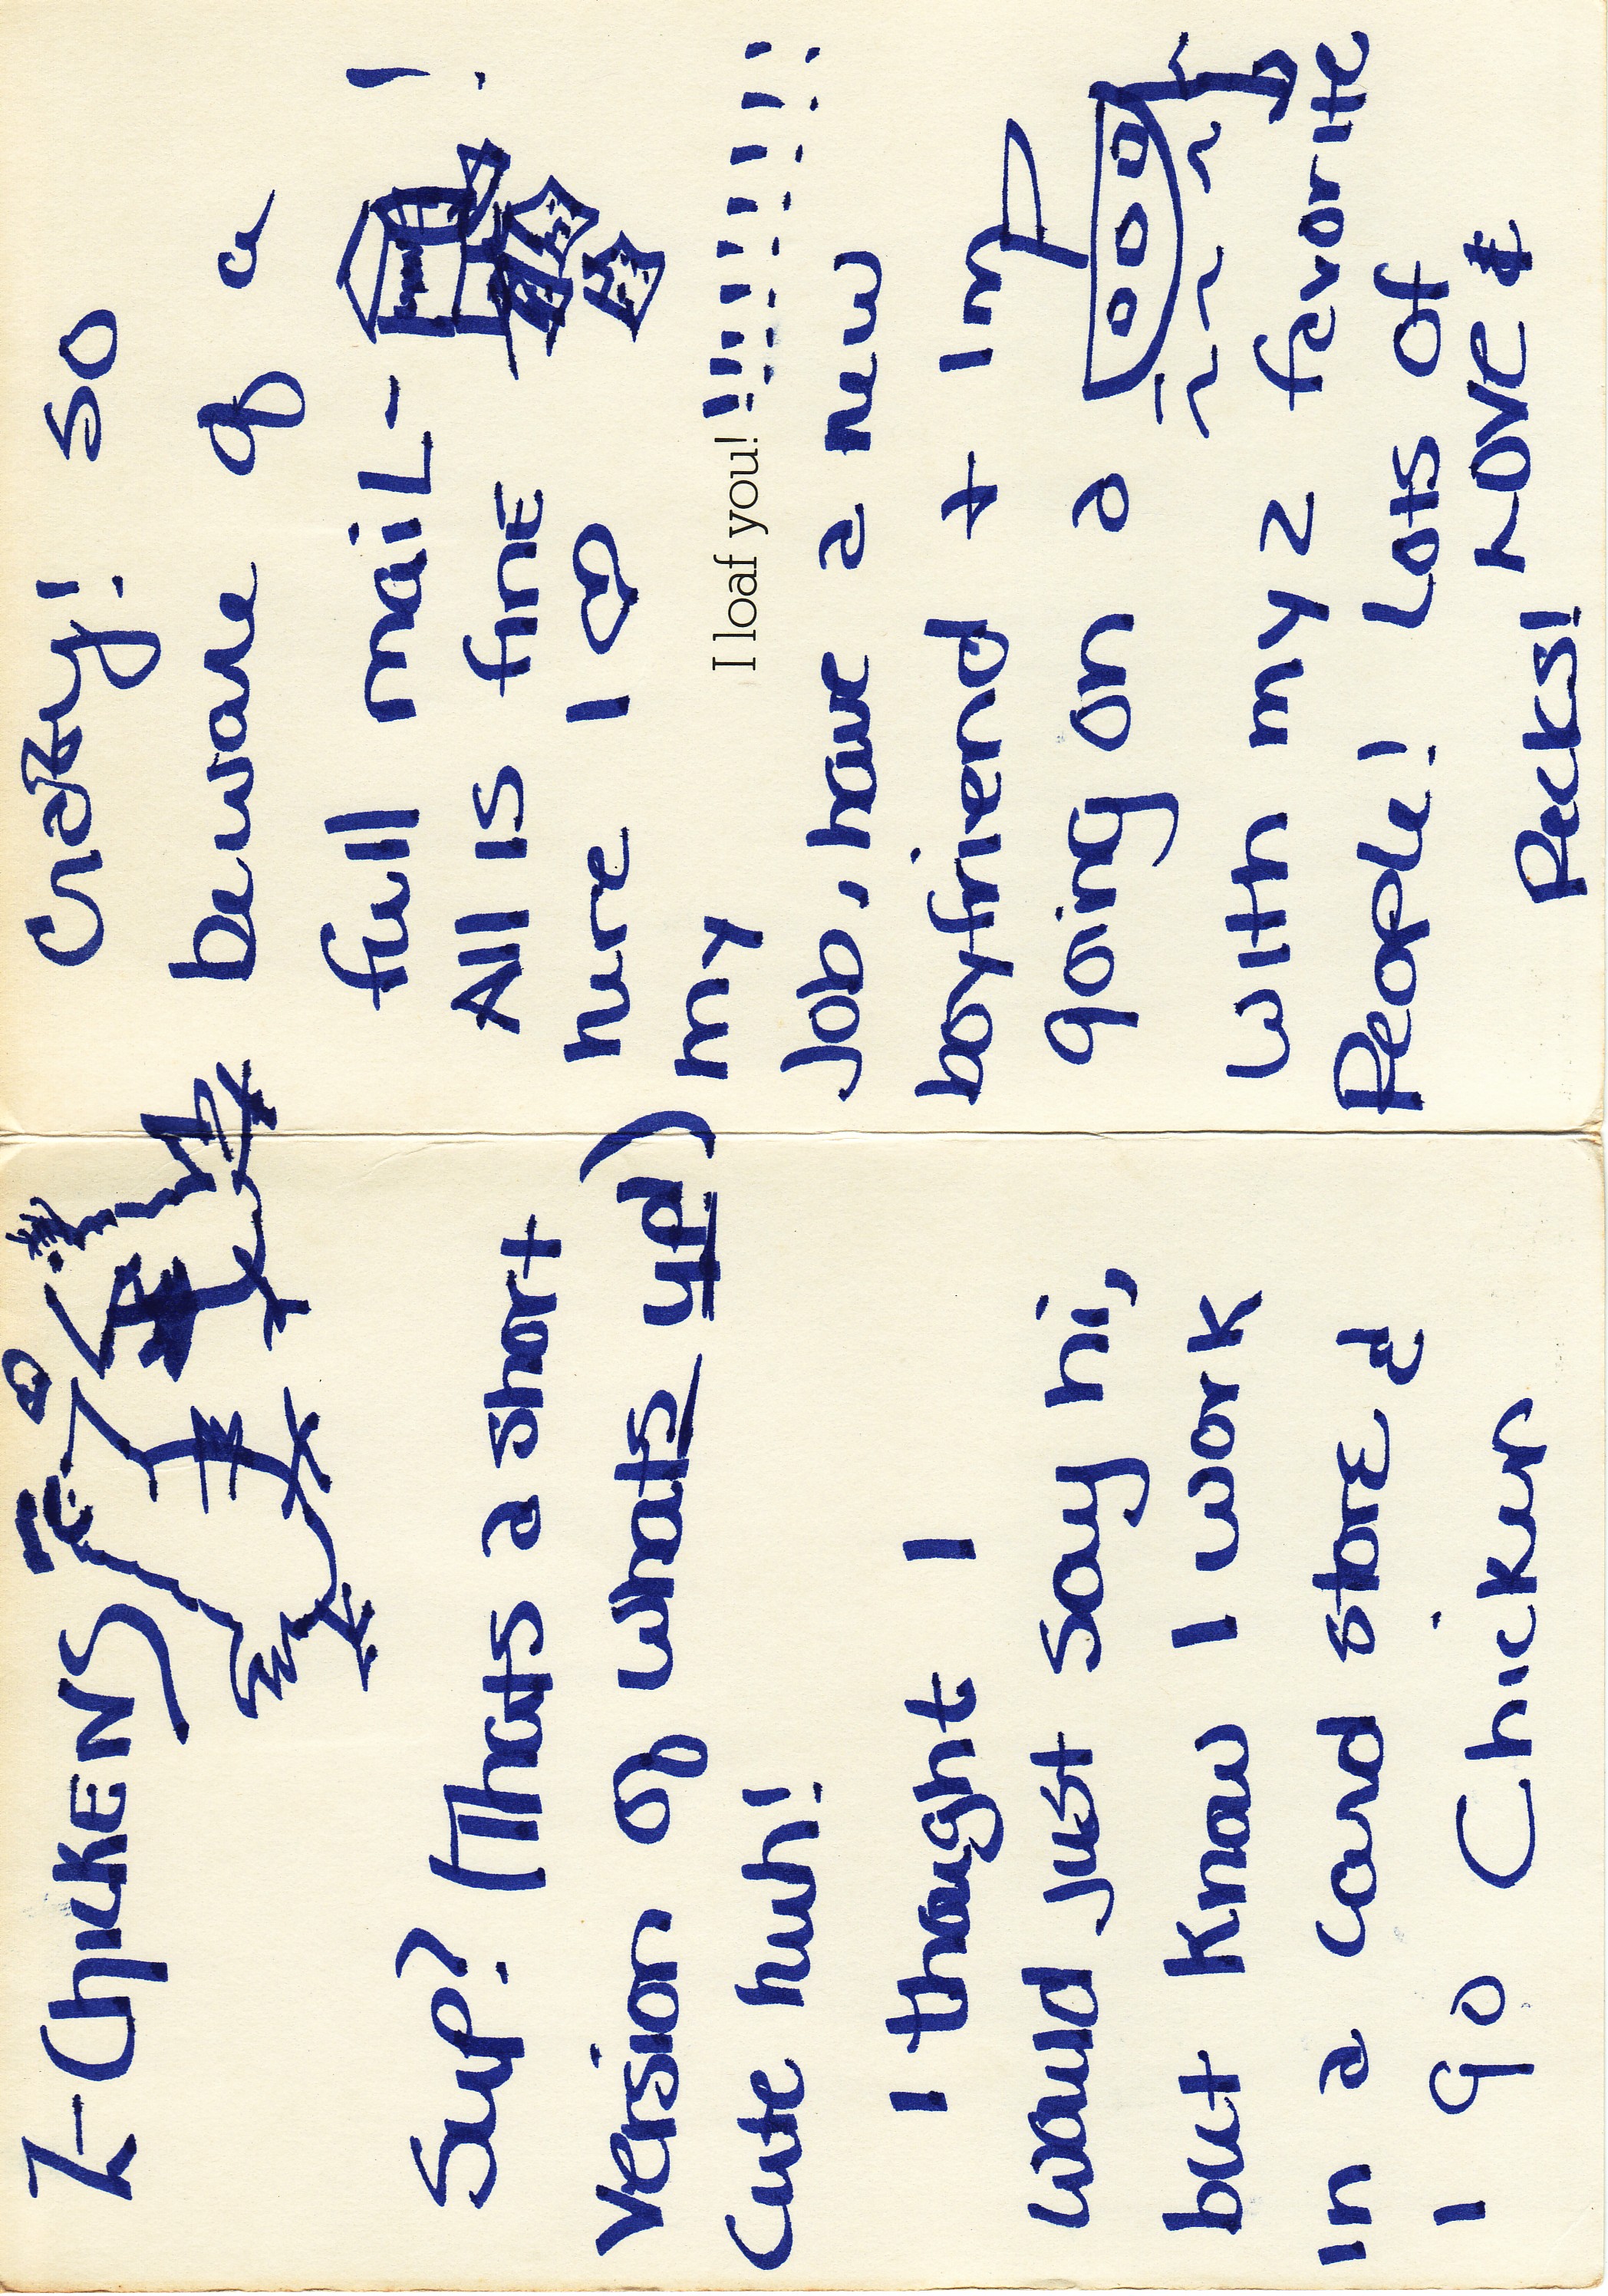 2-ChickENS
Sup? (Thats a short
version of whats up)
Cute huh!
I thought I
would just say hi,
but know I work
in a card store &
I go Chicken
Crazy! so
beware of a
full mail-
!
All is fine
here I ♡
my
I loaf you!!!!!!!!!
Job, have a new
boyfriend + Im
going on a
with my 2 favorite
People! Lots of
Love &
Pecks!